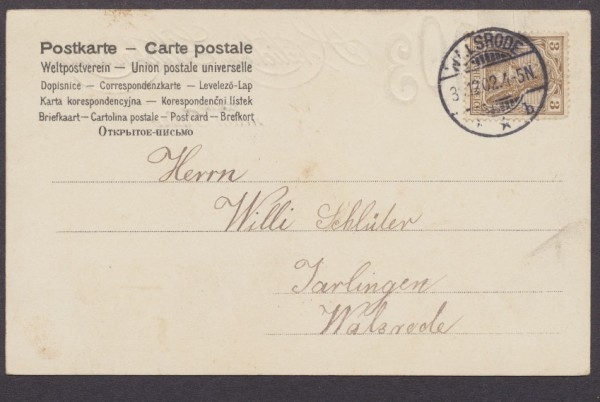 Postkarte – Carte postale
Weltpostverein – Union postale universelle
Dopisnice – Correspondenzkarte – Levelező-Lap
Karta korespondencyjna – Korespondenční lístek
Briefkaart – Cartolina postale – Post card – Brefkort
Открытое-письмо
WALSRODE
02.4-5N.
b
3
3
Herrn
Willi Schlüter
Jarlingen
Walsrode